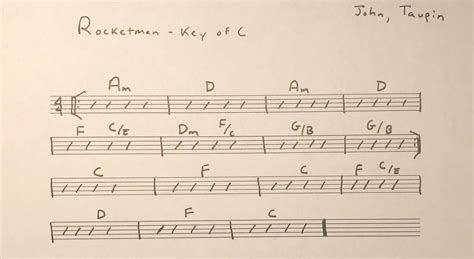 Rocketman - Key of C
John, Taupin
4/4 Am D Am D
F C/E Dm F/C G/B G/B
C F C F C/E
D F C